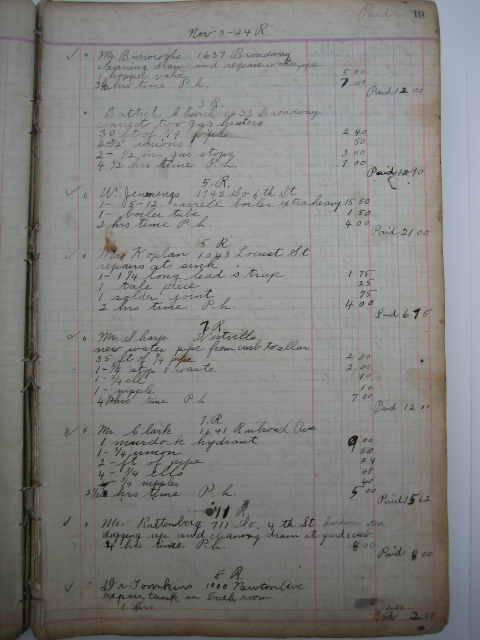 Paid 19
Nov-3-24 R.
Mr Burroughs 1637 Broadway
cleaning drain and repair water pipe
1 hopper valve 5 00
3½ hrs time P.h. 7 00
Paid 12 00
3 R.
Battist Church 1633 Broadway
connect two gas heaters
30 ft of ¾ pipe 2 40
2-½ unions 50
2-½ in gas stops 3 00
4½ hrs time P.h. 7 00
Paid 12 90
5. R.
W. Jennings 1742 So 6th St
1- 5-12. carrell boiler extra heavy 15 50
1- boiler tube 1 50
2 hrs time P.h. 4 00
Paid 21 00
5 R
Mrs Koplan 1043 Locust St
repairs at sink
1-1¼ long lead s trap 1 75
1 tale piece 25
1 solder joint 75
2 hrs time P.h. 4 00
Paid 6 75
7 R.
Mr Sharp Westville
new water pipe from curb to cellar
35 ft of ¾ pipe 2 80
1-¾ stop & waste 2 00
1-¾ ell 10
1- nipple 10
4½ hrs time P.h 7 00
Paid 12 00
7. R.
Mr Clark 1641 Railroad Ave
1 murdock hydrant 9 00
1-¾ union 50
2- ft of pipe 24
4-¾ ells 48
¾ nipples 40
2½ hrs time P.h. 5 00
Paid 15 62
11 R
Mr. Ruttenberg 711 So. 4 th St
digging up and cleaning drain at yard curb
4 hrs time P.h. 8 00
Paid 8 00
8 R.
Dr Tomkins 1000 Newton Ave
repair tank in bath room
1 hrs 2.00
Paid 2.00